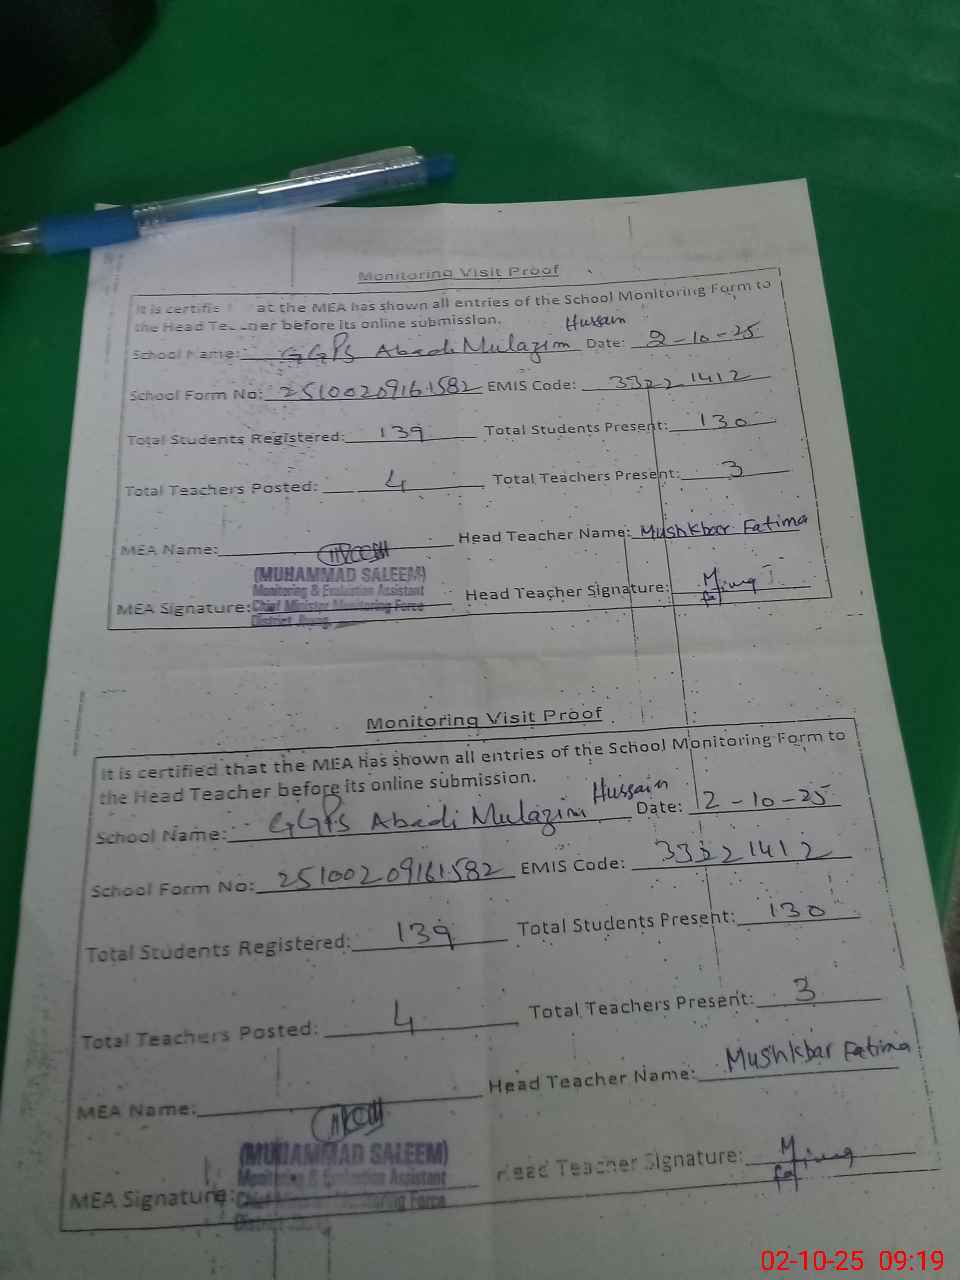 Monitoring Visit Proof
It is certifie at the MEA has shown all entries of the School Monitoring Form to
the Head Te cher before its online submission.
School Name: GGPS Abadi Mulazim Hussain Date: 2-10-25
School Form No: 25100209161582 EMIS Code: 33221412
Total Students Registered: 139 Total Students Present: 130
Total Teachers Posted: 4 Total Teachers Present: 3
MEA Name: Head Teacher Name: Mushkbar Fatima
(MUHAMMAD SALEEM)
Monitoring & Evaluation Assistant
MEA Signature: Chief Minister Monitoring Force Head Teacher Signature:
District Jhang.
Monitoring Visit Proof
It is certified that the MEA has shown all entries of the School Monitoring Form to
the Head Teacher before its online submission.
School Name: GGPS Abadi Mulazim Hussain Date: 2-10-25
School Form No: 25100209161582 EMIS Code: 33221412
Total Students Registered: 139 Total Students Present: 130
Total Teachers Posted: 4 Total Teachers Present: 3
MEA Name: Head Teacher Name: Mushkbar Fatima
(MUHAMMAD SALEEM)
Monitoring & Evaluation Assistant
MEA Signature: Chief Minister Monitoring Force Head Teacher Signature:
District
02-10-25 09:19